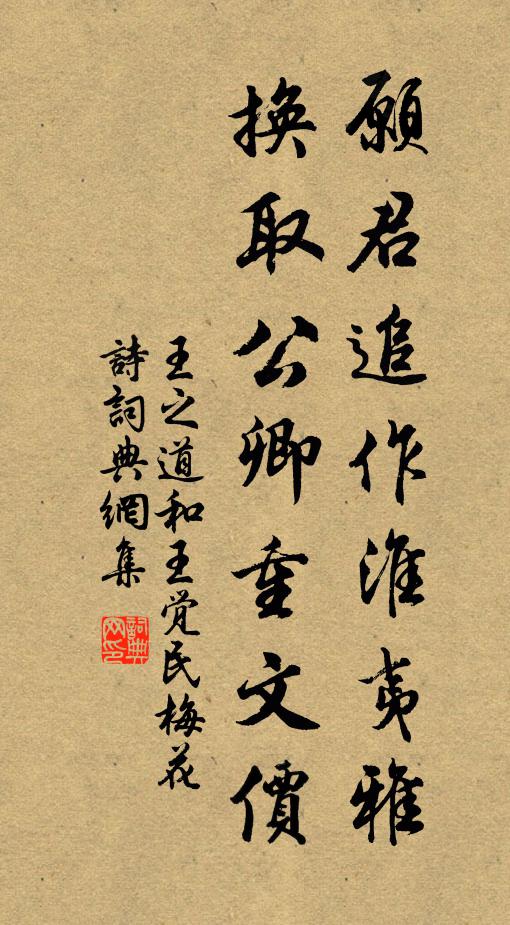 願君追作淮夷雅
換取公卿重文價
王之道和王覚民梅花
詩詞典網集
詞典网印